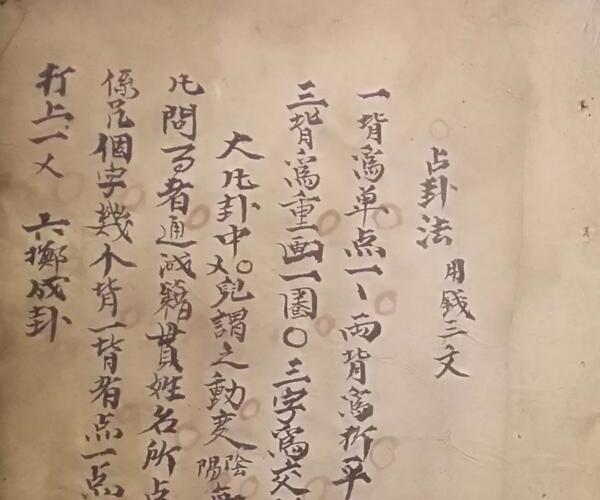 占卦法 用錢三文
一背為单点一丶両背為折平
三背為重画一圈〇三字為交
大凡卦中〇乂兒謂之動变陰陽
凡問了者通诚籍貫姓名所占
係凡個字幾个背一背者点一点
打上一乂 六擲成卦